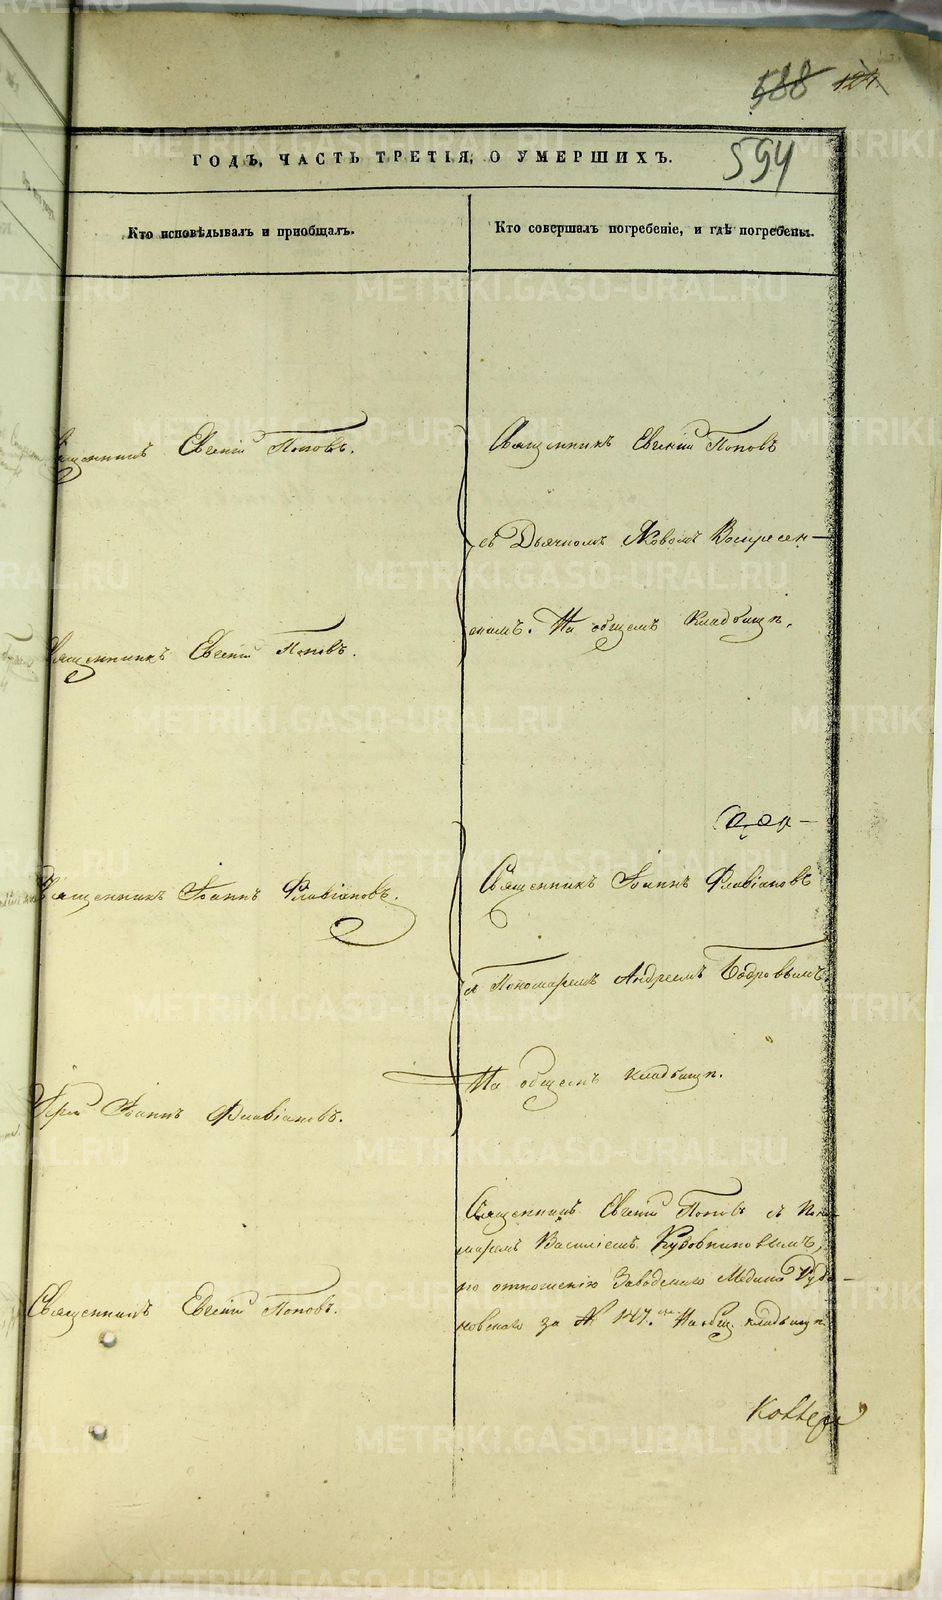 588 124
ГОДЪ, ЧАСТЬ ТРЕТІЯ, О УМЕРШИХЪ.
594
Кто исповѣдывалъ и пріобщалъ.
Кто совершалъ погребеніе, и гдѣ погребены.
Священникъ Евгеній Поповъ.
Священникъ Евгеній Поповъ
съ Дьячкомъ Яковомъ Воскресен-
скимъ. На общемъ Кладбищѣ.
Священникъ Евгеній Поповъ.
Священникъ Іоаннъ Флавіановъ.
Священникъ Іоаннъ Флавіановъ
съ Пономаремъ Андреемъ Бодровымъ
На общемъ кладбищѣ.
Іерей Іоаннъ Флавіановъ.
Священникъ Евгеній Поповъ съ Поно-
маремъ Василіемъ Кудовниковымъ,
по отношенію Заводскаго Медика Рудо-
новскаго за № 147. На общ. кладбищѣ
Священникъ Евгеній Поповъ.
METRIKI.GASO-URAL.RU